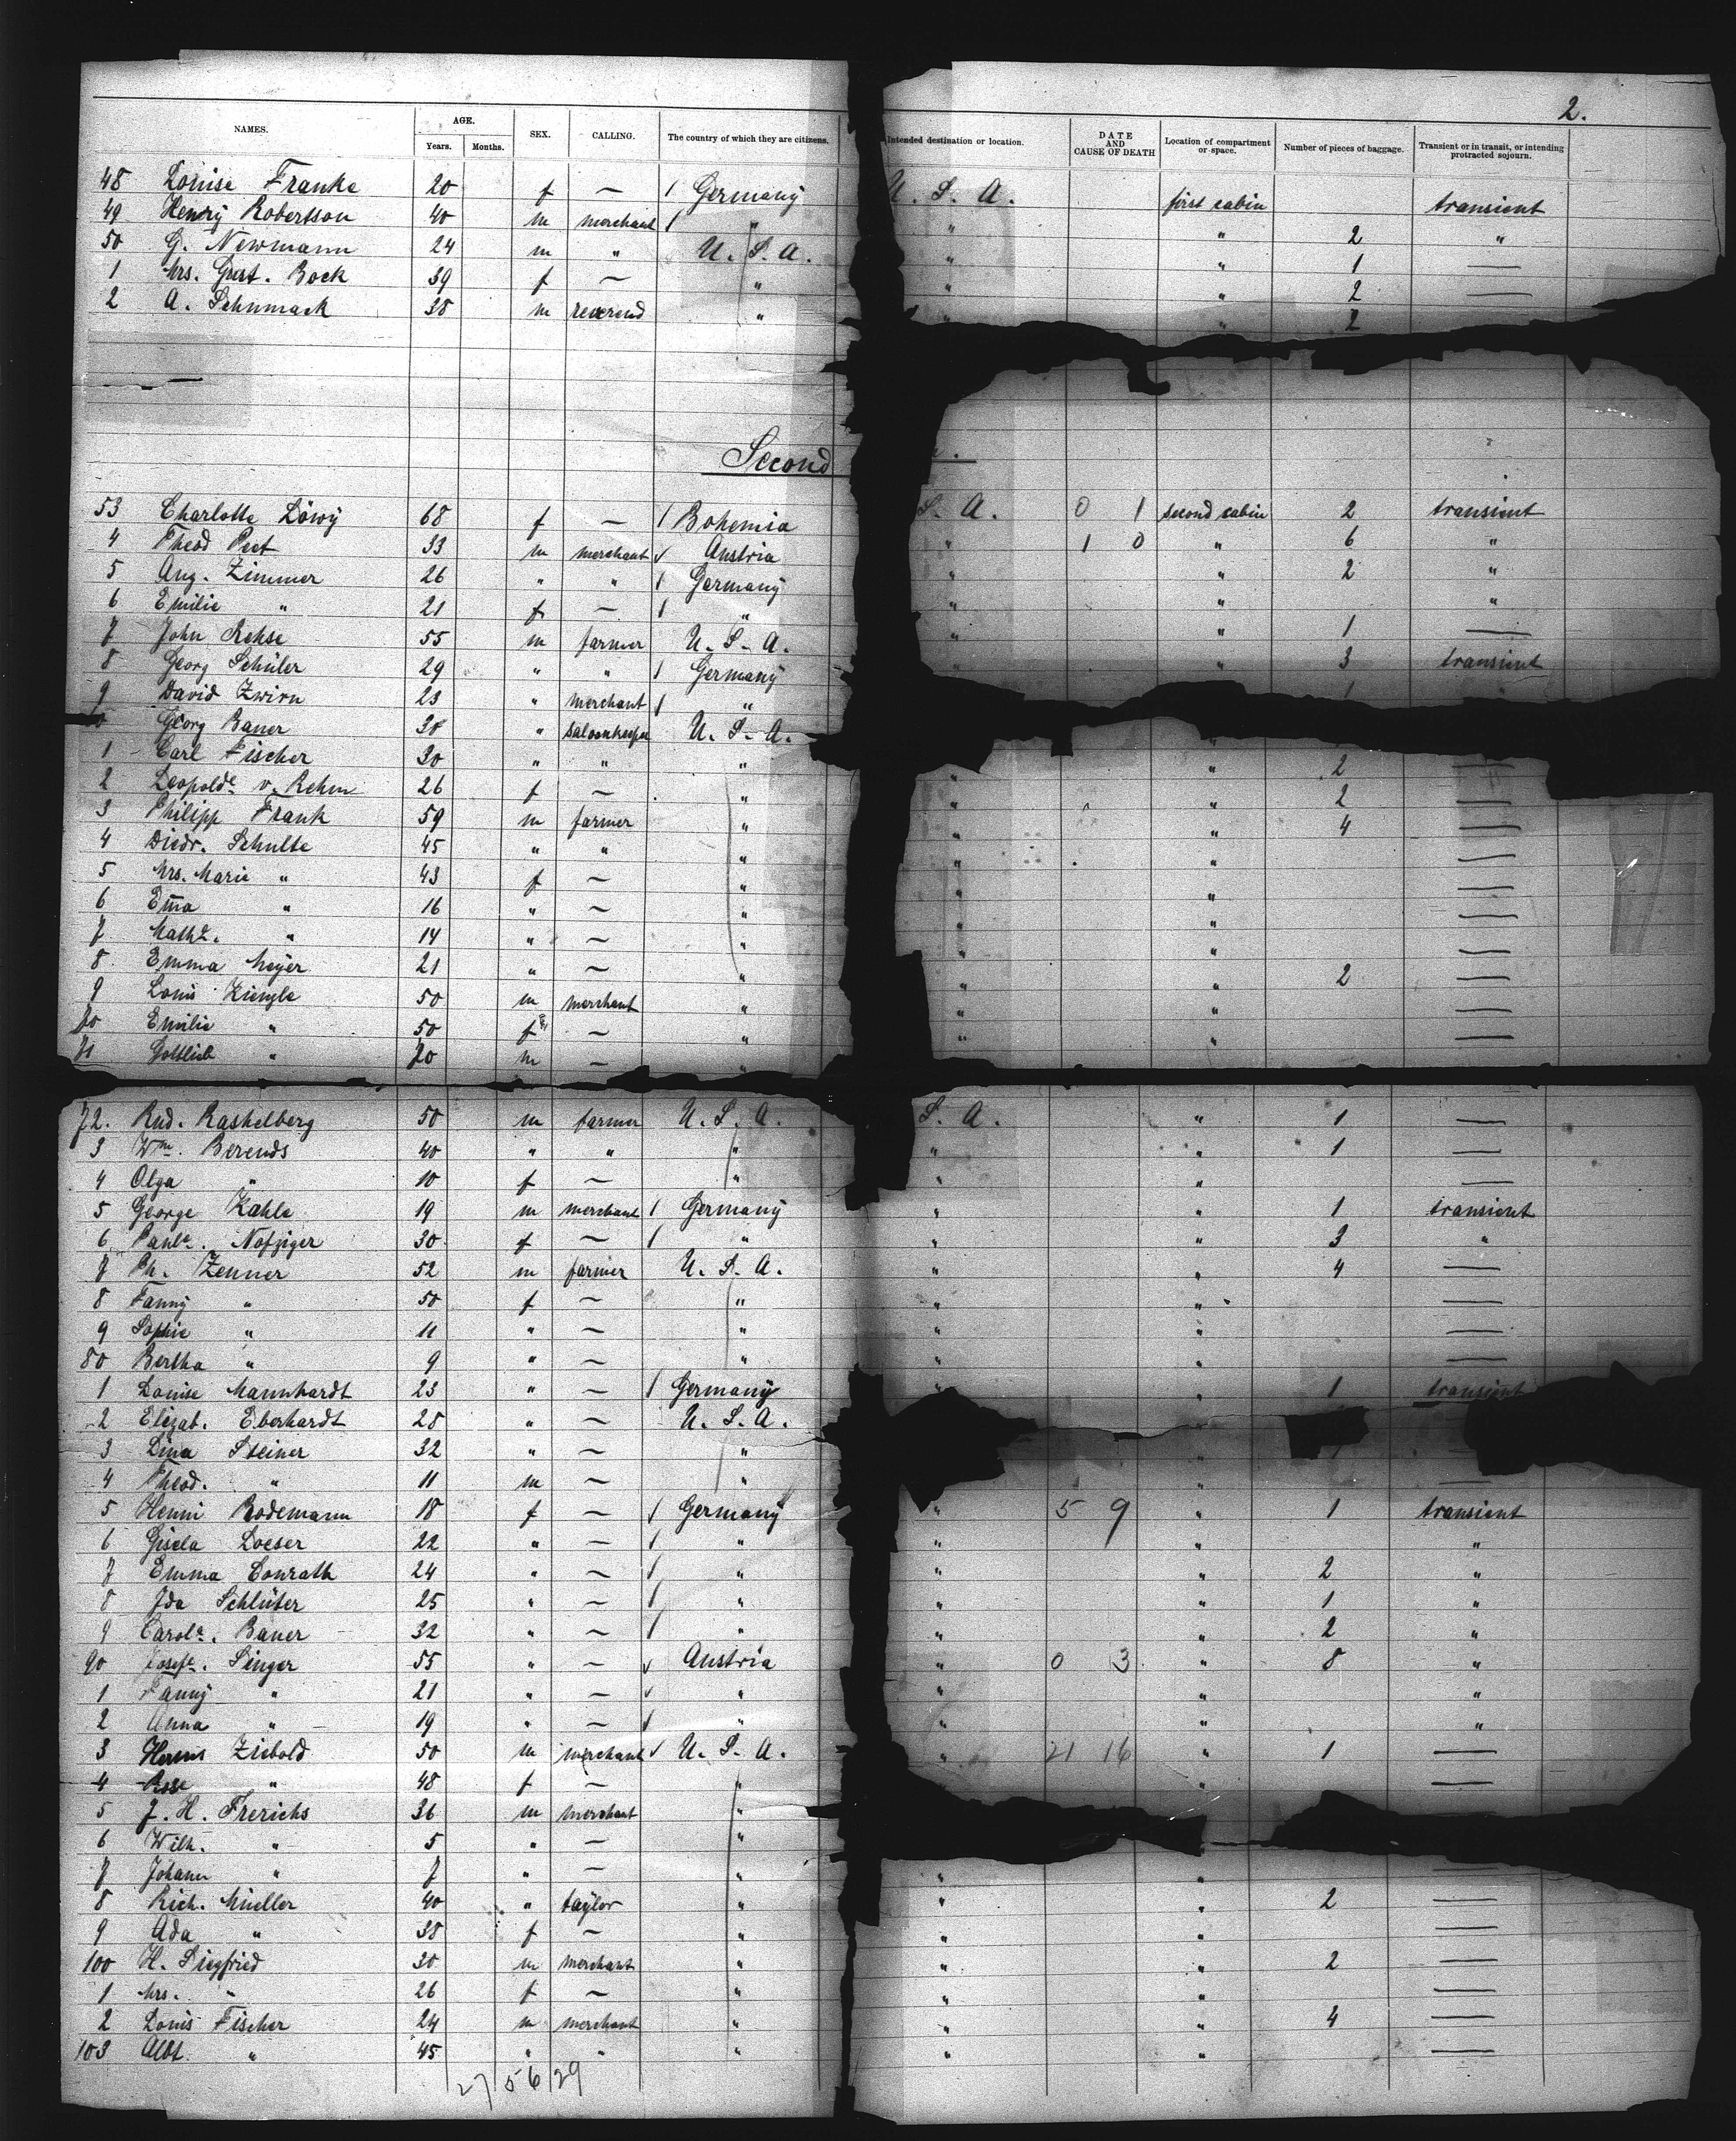 2.
NAMES. AGE. Years. Months. SEX. CALLING. The country of which they are citizens. Intended destination or location. DATE AND CAUSE OF DEATH Location of compartment or space. Number of pieces of baggage. Transient or in transit, or intending protracted sojourn.
48 Louise Franke 20 f — / Germany U. S. A. first cabin transient
49 Henry Robertson 40 m merchant / " " " 2 "
50 G. Newmann 24 m " U. S. A. " " 1 —
1 Mrs. Gust. Bock 39 f — " " " 2 —
2 A. Schumack 38 m reverend " " " 2
Second
53 Charlotte Löwy 68 f — / Bohemia S. A. 0 1 second cabin 2 transient
4 Theod Peet 33 m merchant ✓ Austria " 1 0 " 6 "
5 Aug. Zimmer 26 " " / Germany " " 2 "
6 Emilie " 21 f — / " " " "
7 John Rehse 55 m farmer U. S. A. " " 1 —
8 Georg Schüler 29 " " / Germany " " 3 transient
9 David Zwirn 23 " merchant / " 1
Georg Bauer 38 " saloonkeeper U. S. A.
1 Carl Fischer 30 " " " " " 2 —
2 Leopolde v. Rehm 26 f — " " " 2 —
3 Philipp Frank 59 m farmer " " " 4 —
4 Diedr. Schulte 45 " " " " " —
5 Mrs. Marie " 43 f — " " " —
6 Em̅a " 16 " — " " " —
7 Mathe. " 14 " — " " " —
8 Emma Meyer 21 " — " " " 2 —
9 Louis Ziengle 50 m merchant " " " —
70 Emilie " 50 f — " " " —
71 Gottlieb " 20 m — " " " —
72. Rud. Raskelberg 50 m farmer U. S. A. S. A. " 1 —
3 Wm. Berends 40 " " " " " 1 —
4 Olga " 10 f — " " " —
5 George Kahle 19 m merchant / Germany " " 1 transient
6 Paule. Nofziger 30 f — / " " " 3 "
7 Ph. Zenner 52 m farmer U. S. A. " " 4 —
8 Fanny " 50 f — " " " —
9 Sophie " 11 " — " " " —
80 Bertha " 9 " — " " " —
1 Louise Mannhardt 23 " — / Germany " " 1 transient
2 Elizab. Eberhardt 28 " — U. S. A.
3 Lina Steiner 32 " — "
4 Theod. " 11 m — " —
5 Henni Rodemann 18 f — / Germany " 5 9 " 1 transient
6 Gisela Loeser 22 " — / " " " "
7 Emma Conrath 24 " — / " " " 2 "
8 Ida Schlüter 25 " — / " " " 1 "
9 Carole. Bauer 32 " — / " " " 2 "
90 Josefe. Singer 55 " — ✓ Austria " 0 3 " 8 "
1 Fanny " 21 " — ✓ " " " "
2 Anna " 19 " — / " " " "
3 Herm Ziebold 50 m merchant ✓ U. S. A. " 21 16 " 1 —
4 Rose " 48 f — " " —
5 J. H. Frerichs 36 m merchant "
6 Wilh. " 5 " — "
7 Johann " 7 " — " " " —
8 Rich. Mueller 40 " taylor " " " 2 —
9 Ada " 38 f — " " " —
100 H. Siegfried 30 m merchant " " " 2 —
1 Mrs. " 26 f — " " " —
2 Louis Fischer 24 m merchant " " " 4 —
103 Albt. " 45 " " " " " —
27 56 29